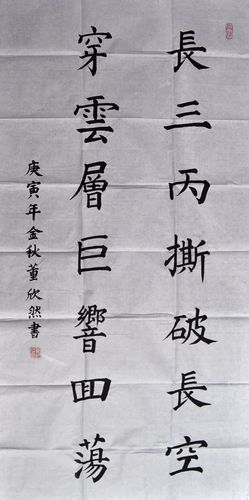 長三丙撕破長空
穿雲層巨響回蕩
庚寅年金秋董欣然書